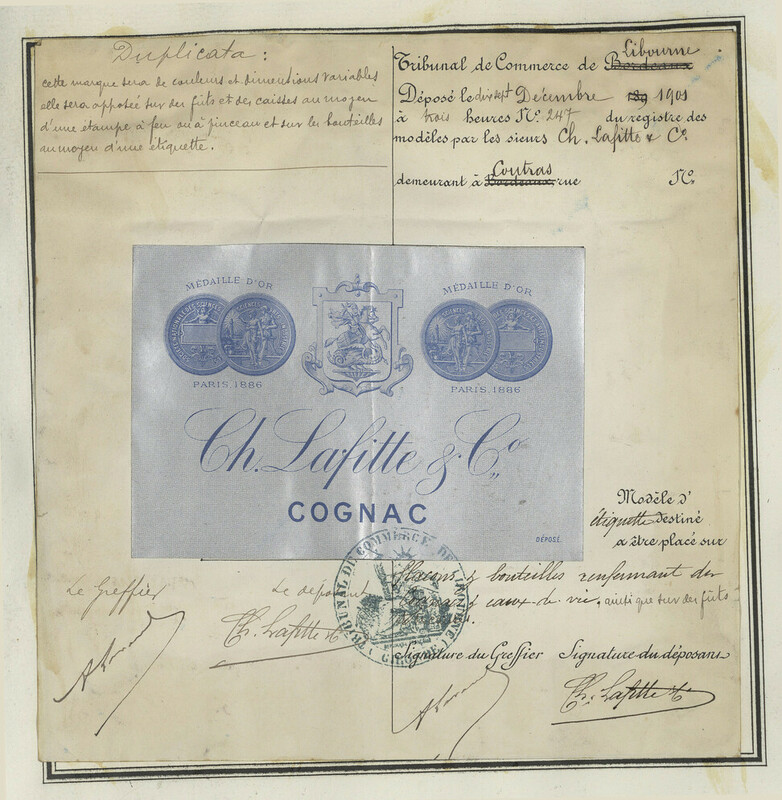 Duplicata :
cette marque sera de couleurs et dimentions variables
elle sera apposée sur des fûts et des caisses au moyen
d'une étampe à feu ou à pinceau et sur les bouteilles
au moyen d'une étiquette.
Libourne
Tribunal de Commerce de Bordeaux
Déposé le dix sept Décembre 189 1901
à trois heures N° 247 du registre des
modèles par les sieurs Ch. Lafitte & Co
Coutras
demeurant à Bordeaux rue N°
MÉDAILLE D'OR
MÉDAILLE D'OR
PARIS 1886
PARIS 1886
Ch. Lafitte & Co
COGNAC
DÉPOSÉ
Modèle d'
étiquette destiné
a être placé sur
flacons & bouteilles renfermant des
eaux de vie, ainsi que sur des fûts
TRIBUNAL DE COMMERCE DE LIBOURNE
(GIRONDE)
Le Greffier
Le déposant
Ch. Lafitte & Co
Signature du Greffier Signature du déposant
Ch. Lafitte & Co